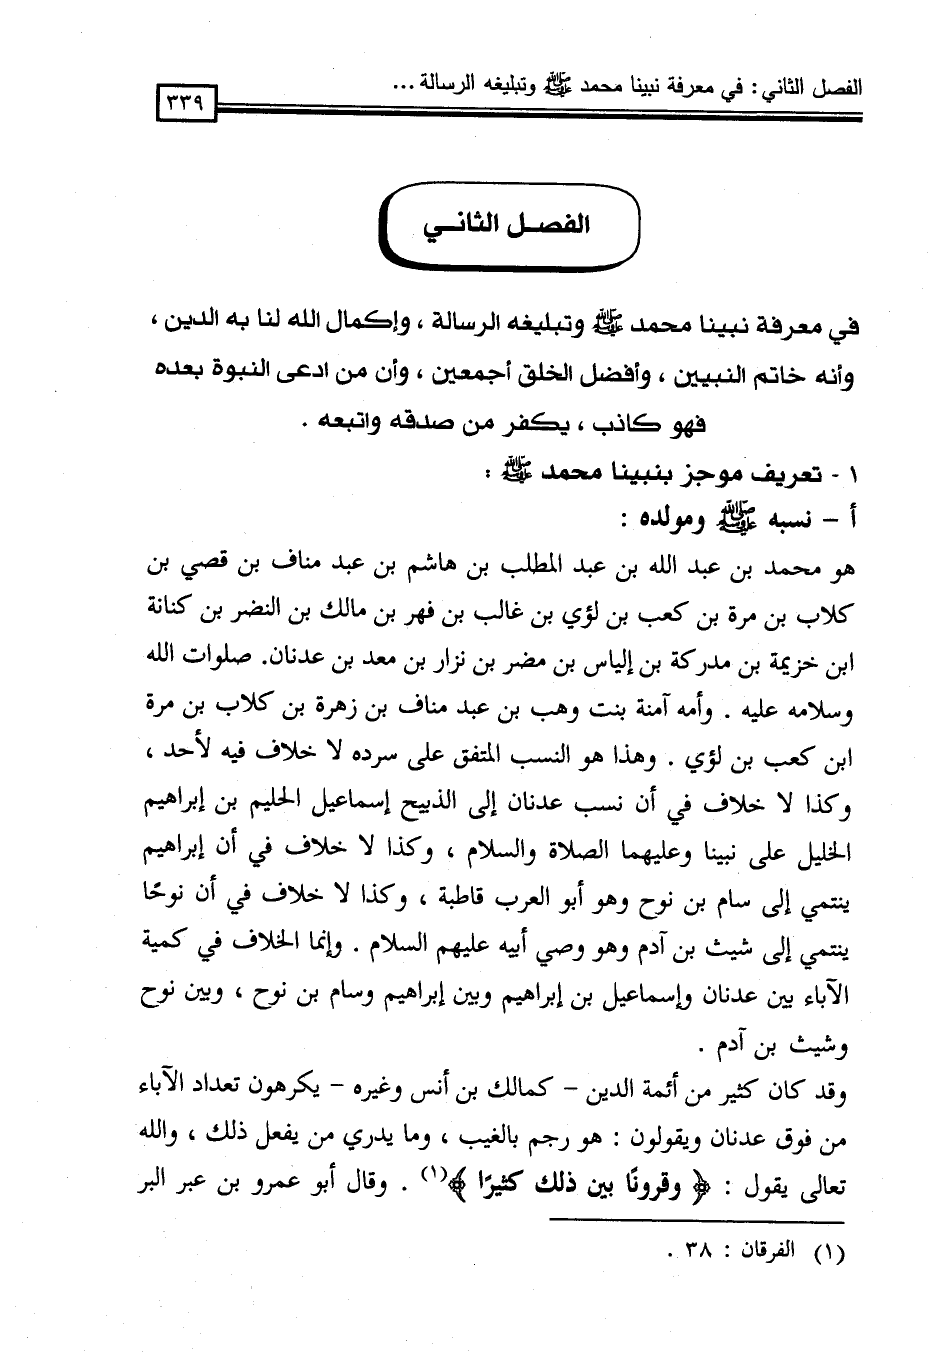 الفصل الثاني : في معرفة نبينا محمد ﷺ وتبليغه الرسالة ...
٣٣٩
الفصل الثاني
في معرفة نبينا محمد ﷺ وتبليغه الرسالة ، وإكمال الله لنا به الدين ،
وأنه خاتم النبيين ، وأفضل الخلق أجمعين ، وأن من ادعى النبوة بعده
فهو كاذب ، يكفر من صدقه واتبعه .
١ - تعريف موجز بنبينا محمد ﷺ :
أ - نسبه ﷺ ومولده :
هو محمد بن عبد الله بن عبد المطلب بن هاشم بن عبد مناف بن قصي بن
كلاب بن مرة بن كعب بن لؤي بن غالب بن فهر بن مالك بن النضر بن كنانة
ابن خزيمة بن مدركة بن إلياس بن مضر بن نزار بن معد بن عدنان. صلوات الله
وسلامه عليه . وأمه آمنة بنت وهب بن عبد مناف بن زهرة بن كلاب بن مرة
ابن كعب بن لؤي . وهذا هو النسب المتفق على سرده لا خلاف فيه لأحد ،
وكذا لا خلاف في أن نسب عدنان إلى الذبيح إسماعيل الحليم بن إبراهيم
الخليل على نبينا وعليهما الصلاة والسلام ، وكذا لا خلاف في أن إبراهيم
ينتمي إلى سام بن نوح وهو أبو العرب قاطبة ، وكذا لا خلاف في أن نوحًا
ينتمي إلى شيث بن آدم وهو وصي أبيه عليهم السلام . وإنما الخلاف في كمية
الآباء بين عدنان وإسماعيل بن إبراهيم وبين إبراهيم وسام بن نوح ، وبين نوح
وشيث بن آدم .
وقد كان كثير من أئمة الدين - كمالك بن أنس وغيره - يكرهون تعداد الآباء
من فوق عدنان ويقولون : هو رجم بالغيب ، وما يدري من يفعل ذلك ، والله
تعالى يقول : ﴿ وقرونًا بين ذلك كثيرًا ﴾(١) . وقال أبو عمرو بن عبر البر
(١) الفرقان : ٣٨ .